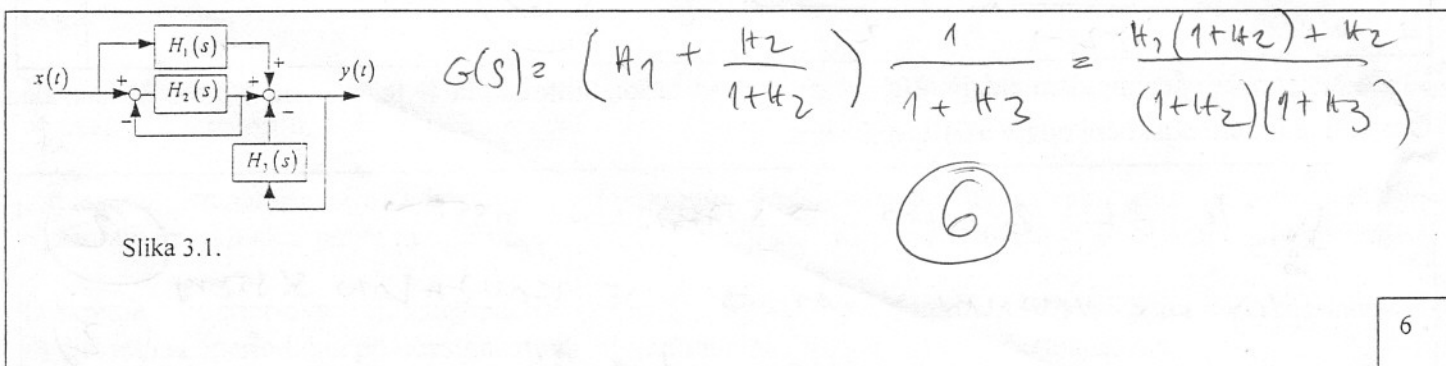 H₁(s)
x(t) + + y(t)
H₂(s) +
− −
H₃(s)
Slika 3.1.
G(s) = (H1 + H2/(1+H2)) 1/(1+H3) = (H1(1+H2)+H2)/((1+H2)(1+H3))
6
6